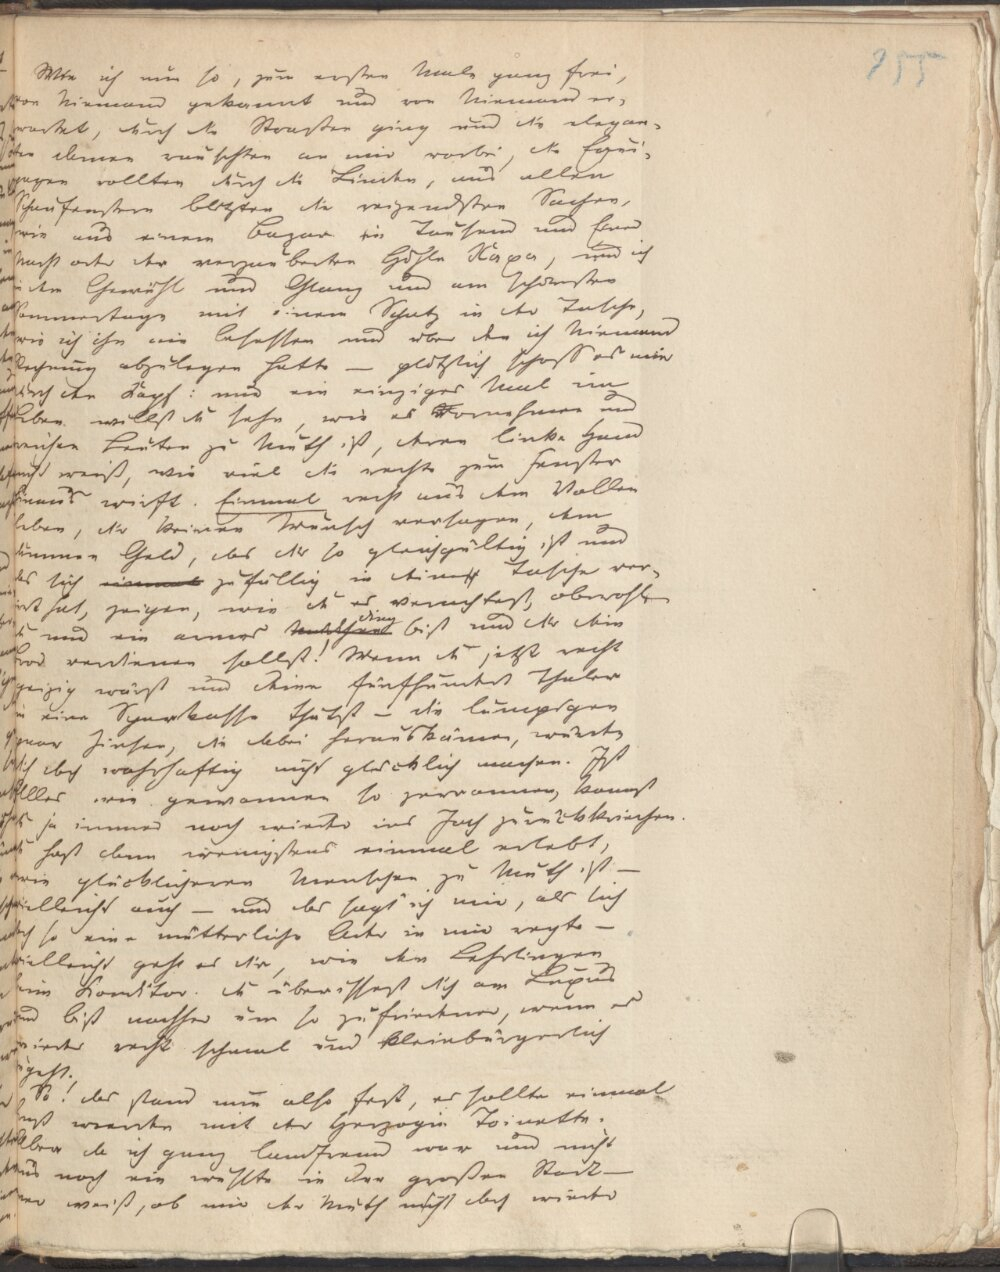 255
Wie ich nun so, zum ersten Male ganz frei,
von Niemand gekannt und von Niemand er-
wartet, durch die Straßen ging und die elegan-
ten Damen rauschten an mir vorbei, die Equi-
pagen rollten durch die Linden, aus allen
Schaufenstern blitzten die reizendsten Sachen,
wie aus einem Bazar in Tausend und Eine
Nacht oder der verzauberten Höhle Xaxa, und ich
in dem Gewühl und Glanz und am schönsten
Sommertage mit einem Schatz in der Tasche,
wie ich ihn nie besessen und über den ich Niemand
Rechnung abzulegen hatte — plötzlich schoß es mir
durch den Kopf: nur ein einziges Mal im
Leben willst du sehn, wie es Vornehmen und
reichen Leuten zu Muth ist, deren linke Hand
nicht weiß, wie viel die rechte zum Fenster
hinaus wirft. Einmal recht aus dem Vollen
leben, dir keinen Wunsch versagen, dem
dummen Geld, das dir so gleichgültig ist und
das sich zufällig in deine Tasche ver-
irrt hat, zeigen, wie du es verachtest, obwohl
du nur ein armes Ding bist und dir dein
Brod verdienen sollst! Wenn du jetzt recht
geizig wärst und deine fünfhundert Thaler
in eine Sparkasse thätst — die lumpigen
paar Zinsen, die dabei herauskämen, würden
dich doch wahrhaftig nicht glücklich machen. Ist
Alles wie gewonnen so zerronnen, kannst
du ja immer noch wieder ins Joch zurückkriechen.
und hast dann wenigstens einmal erlebt,
wie glücklicheren Menschen zu Muth ist —
vielleicht auch — und das sagt' ich mir, als sich
doch so eine mütterliche Ader in mir regte —
vielleicht geht es dir, wie den Lehrlingen
beim Konditor. du überissest dich am Luxus
und bist nachher um so zufriedner, wenn es
wieder recht schmal und kleinbürgerlich
zugeht.
So! das stand nun also fest, es sollte einmal
Ernst werden mit der Herzogin Toinette.
Aber da ich ganz landfremd war und nicht
aus noch ein wußte in der großen Stadt —
wer weiß, ob mir der Muth nicht doch wieder